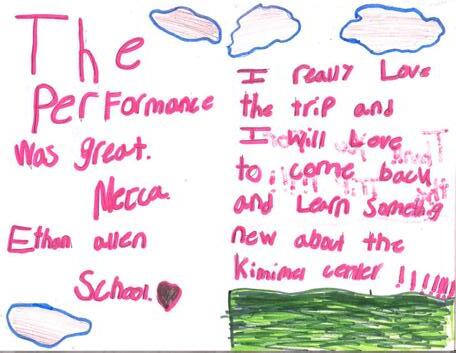 The
Performance
was great.
Necca.
Ethan allen
School.
I really Love
the trip and
I will Love
to come back
and Learn Something
new about the
Kimimel center !!!!!!!